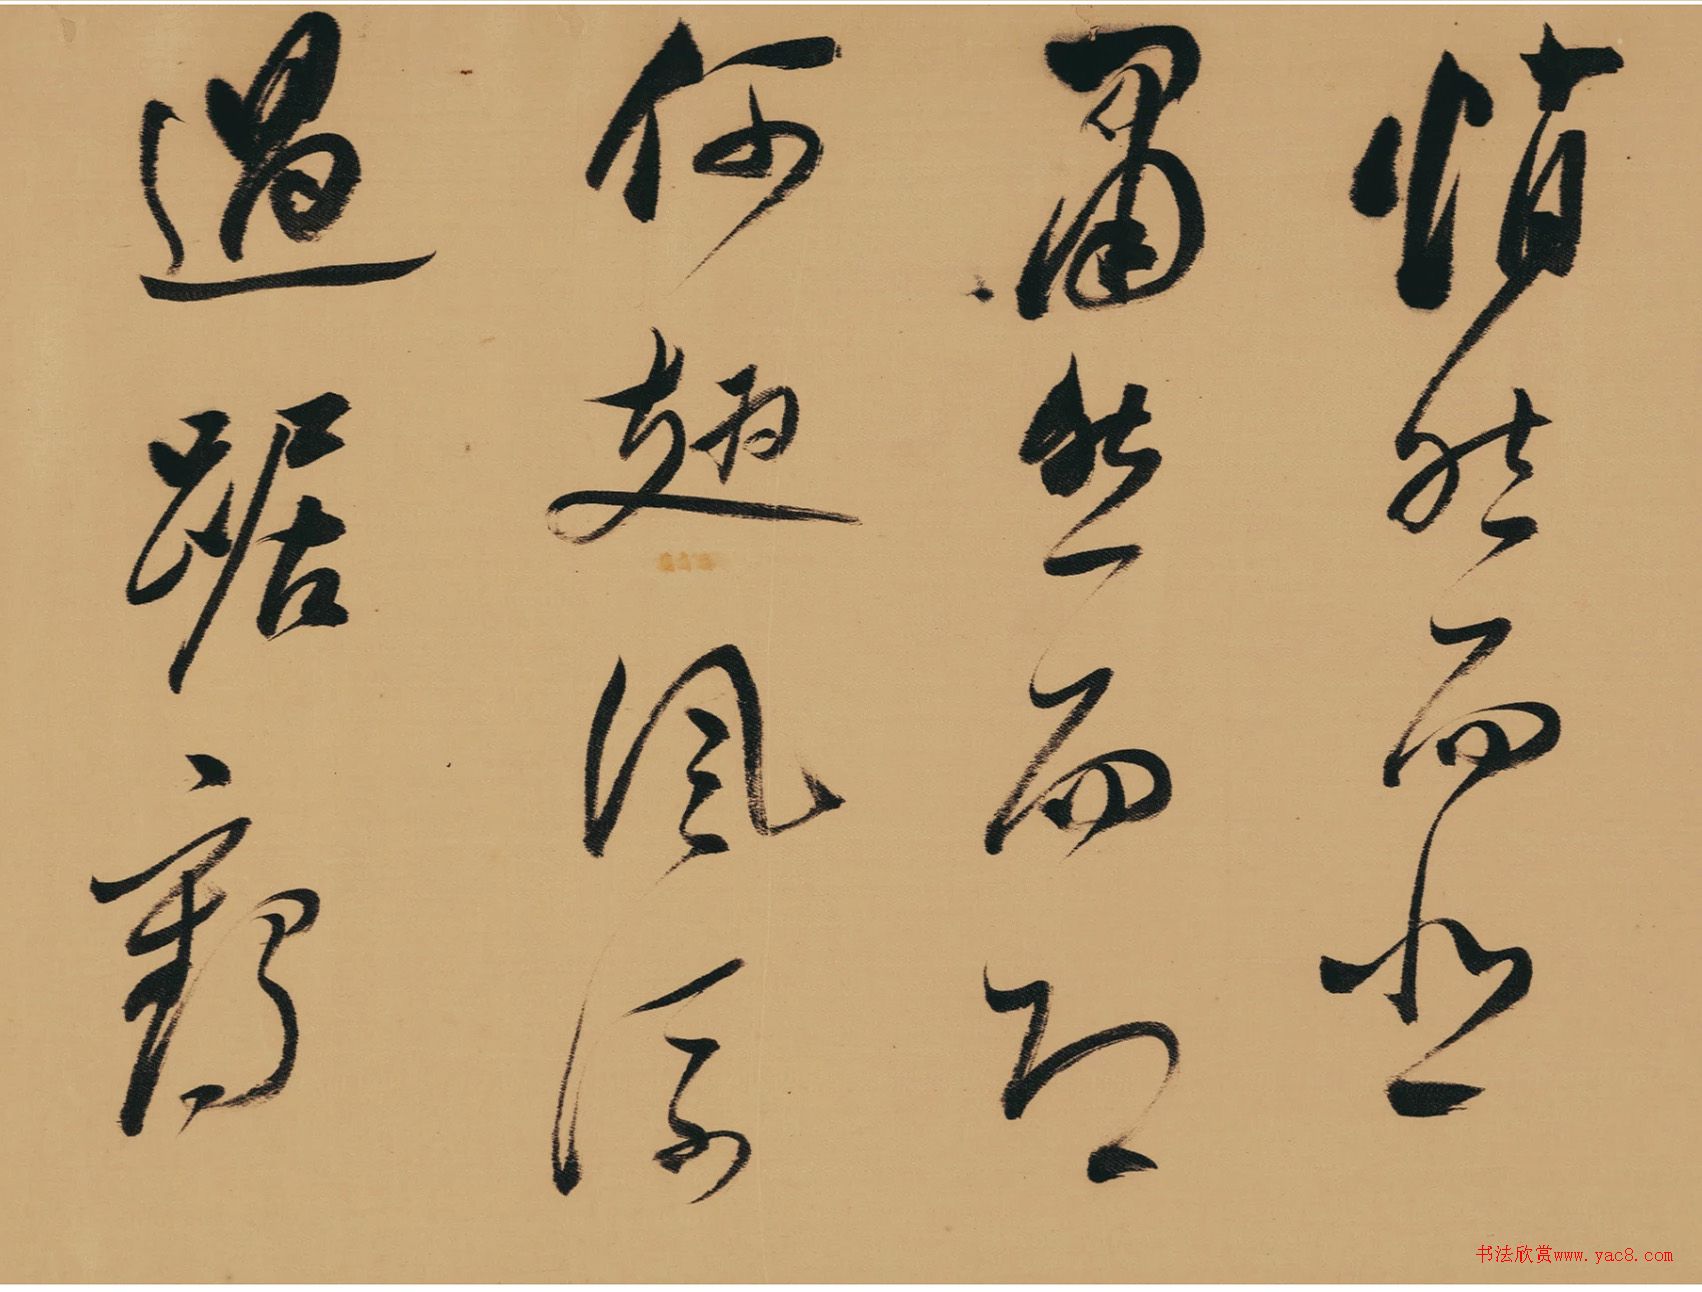 悄然而悲
肅然而恐
何翅風
過踞鶴
书法欣赏www.yac8.com